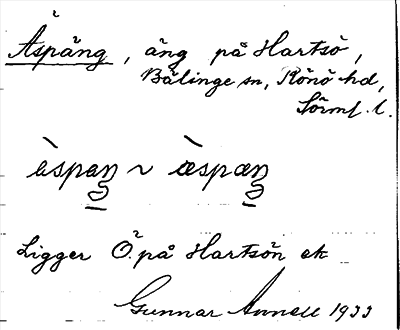 Äspäng, äng på Hartsö,
Bälinge sn, Rönö hd,
Sörml. l.
àspaŋ ~ æspæŋ
Ligger Ö. på Hartsön ek
Gunnar Annell 1933